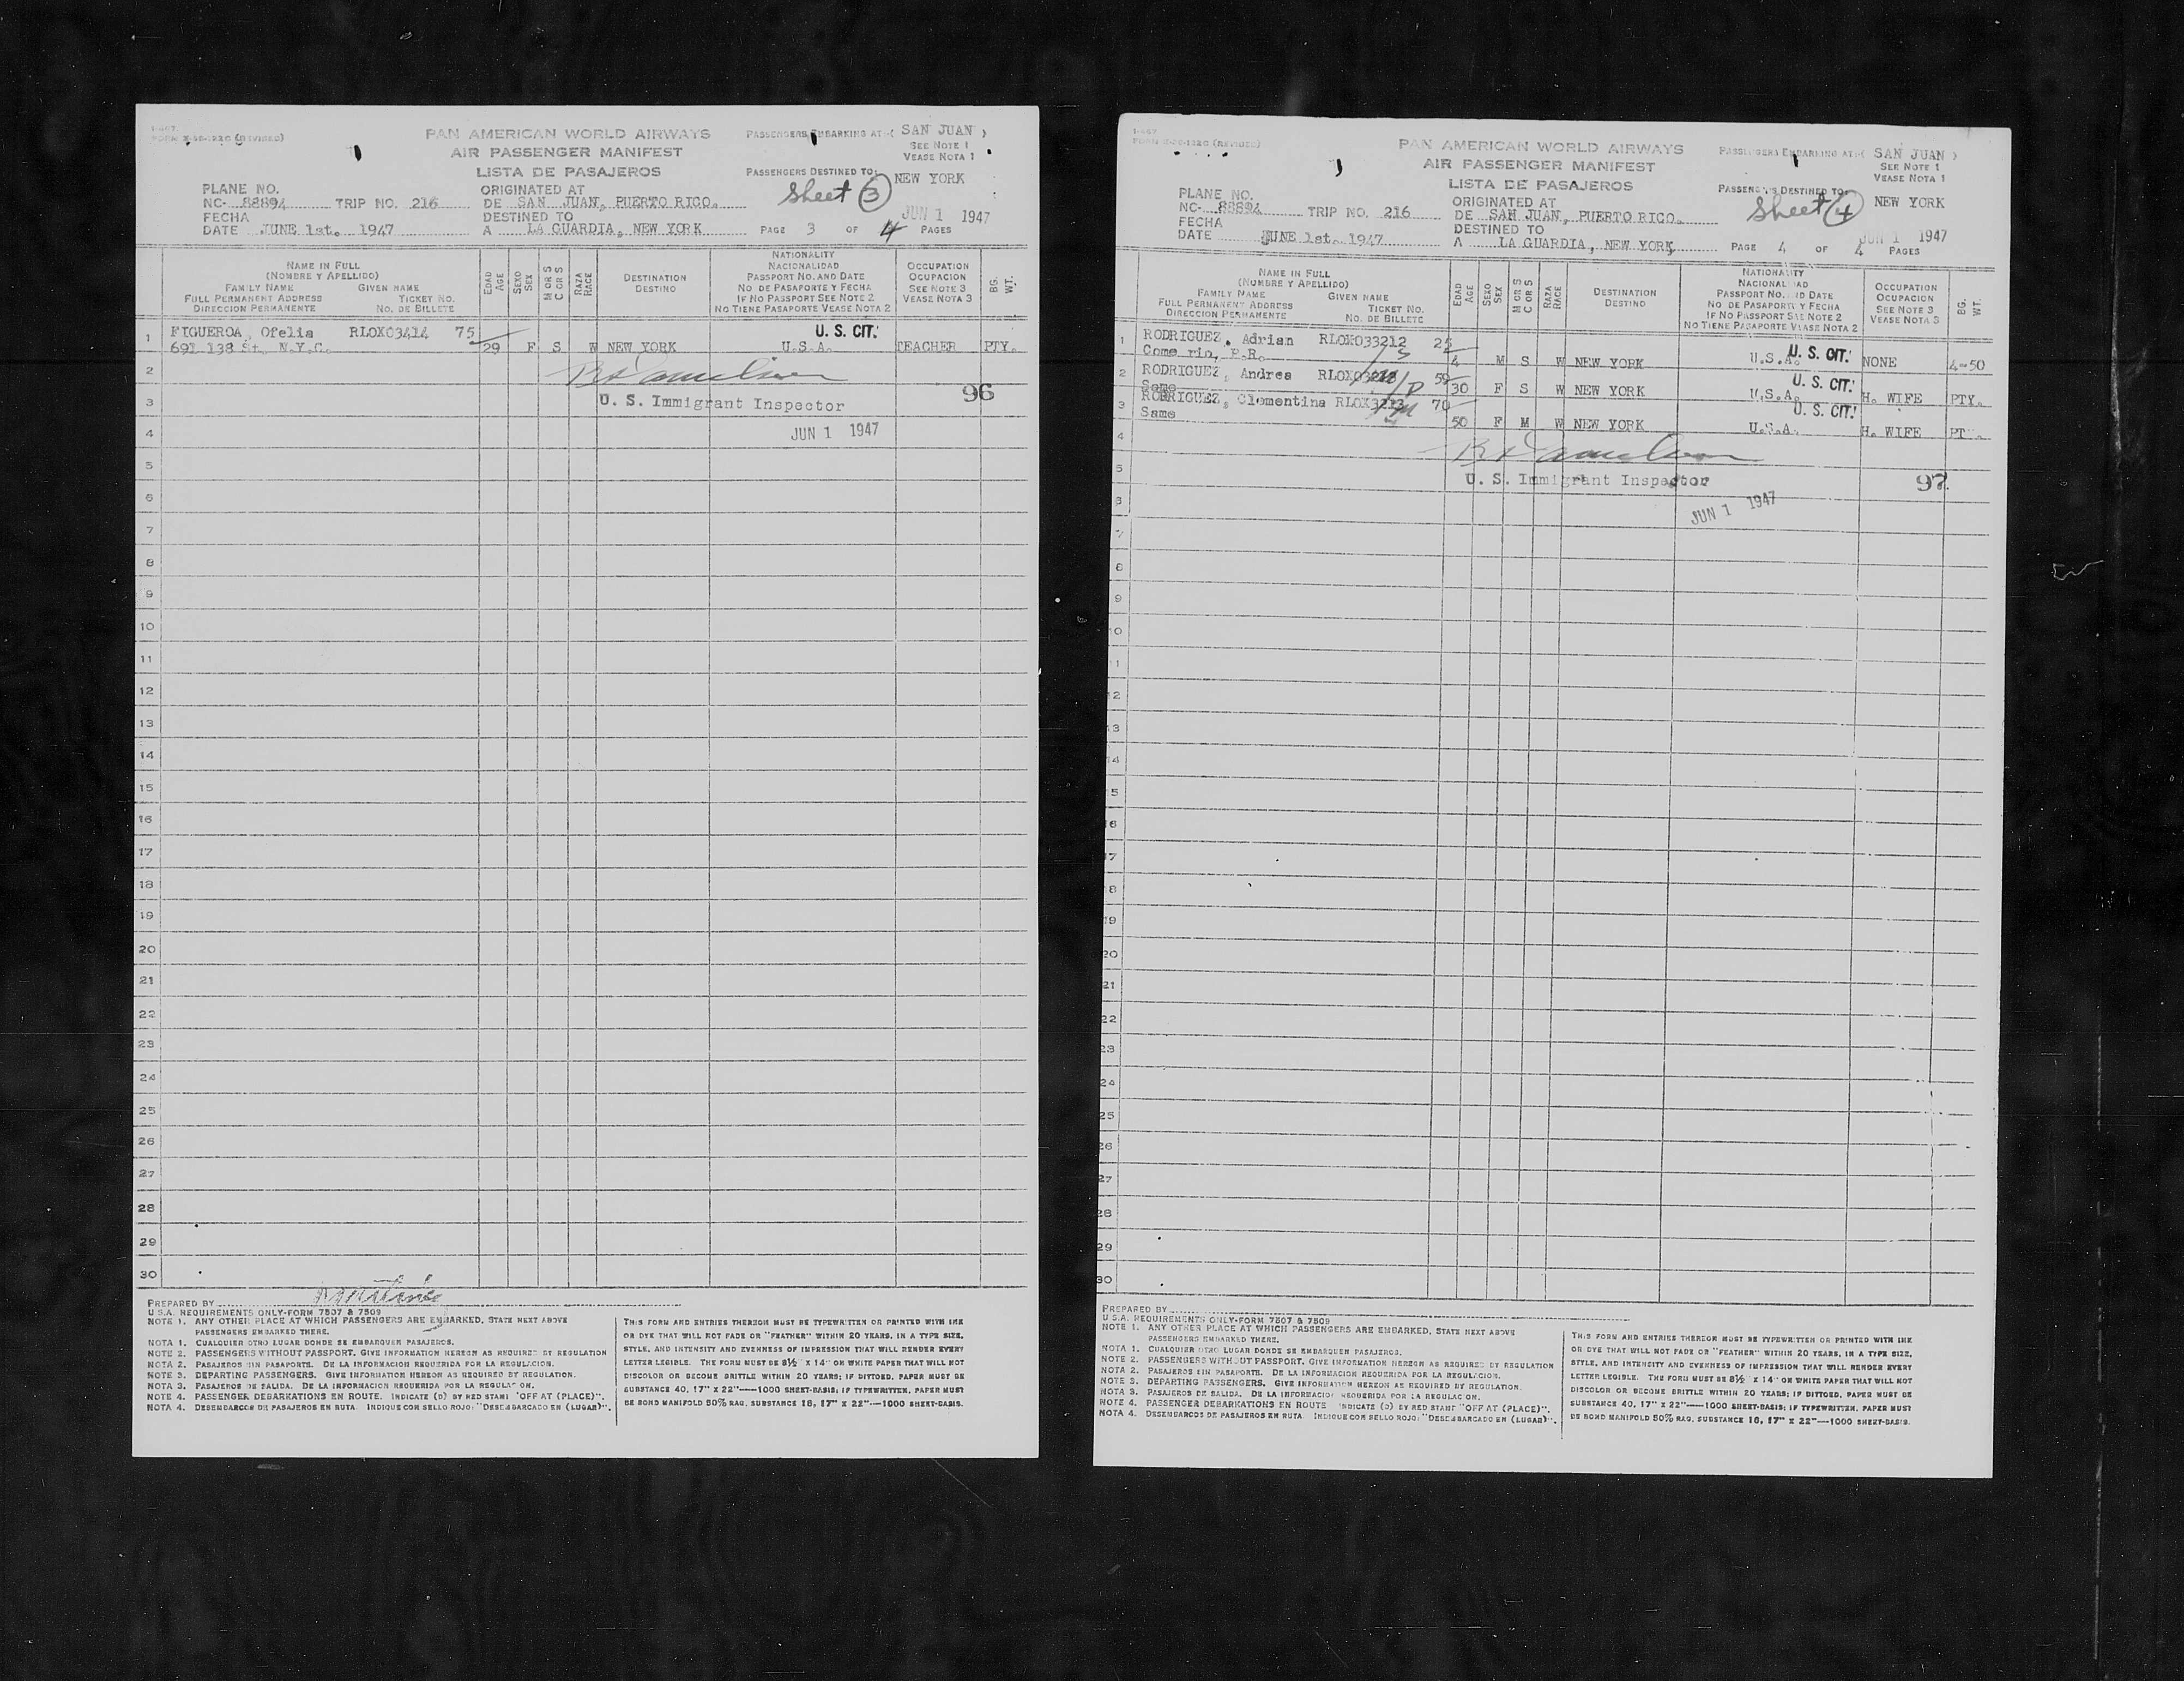 PAN AMERICAN WORLD AIRWAYS
AIR PASSENGER MANIFEST
LISTA DE PASAJEROS
PASSENGERS EMBARKING AT:( SAN JUAN )
SEE NOTE 1
VEASE NOTA 1
PASSENGERS DESTINED TO: NEW YORK
Sheet 3
PLANE NO.
NC- 88894 TRIP NO. 216
ORIGINATED AT
DE SAN JUAN, PUERTO RICO.
JUN 1 1947
FECHA
DATE JUNE 1st. 1947
DESTINED TO
A LA GUARDIA, NEW YORK PAGE 3 OF 4 PAGES
NAME IN FULL
(NOMBRE Y APELLIDO)
FAMILY NAME GIVEN NAME
FULL PERMANENT ADDRESS TICKET NO.
DIRECCION PERMANENTE NO. DE BILLETE
EDAD
AGE
SEXO
SEX
M OR S
C OR S
RAZA
RACE
DESTINATION
DESTINO
NATIONALITY
NACIONALIDAD
PASSPORT NO. AND DATE
NO DE PASAPORTE Y FECHA
IF NO PASSPORT SEE NOTE 2
NO TIENE PASAPORTE VEASE NOTA 2
OCCUPATION
OCUPACION
SEE NOTE 3
VEASE NOTA 3
BG.
WT.
1 FIGUEROA, Ofelia RLOX03414 75 U. S. CIT.
691 138 St. N.Y.C. 29 F S W NEW YORK U.S.A. TEACHER PTY.
2
96
3 U. S. Immigrant Inspector
4 JUN 1 1947
5
6
7
8
9
10
11
12
13
14
15
16
17
18
19
20
21
22
23
24
25
26
27
28
29
30
PREPARED BY
U.S.A. REQUIREMENTS ONLY-FORM 7507 & 7509
NOTE 1. ANY OTHER PLACE AT WHICH PASSENGERS ARE EMBARKED, STATE NEXT ABOVE
PASSENGERS EMBARKED THERE.
NOTA 1. CUALQUIER OTRO LUGAR DONDE SE EMBARQUEN PASAJEROS.
NOTE 2. PASSENGERS WITHOUT PASSPORT. GIVE INFORMATION HEREON AS REQUIRED BY REGULATION
NOTA 2. PASAJEROS SIN PASAPORTE. DE LA INFORMACION REQUERIDA POR LA REGULACION.
NOTE 3. DEPARTING PASSENGERS. GIVE INFORMATION HEREON AS REQUIRED BY REGULATION.
NOTA 3. PASAJEROS DE SALIDA. DE LA INFORMACION REQUERIDA POR LA REGULACION.
NOTE 4. PASSENGER DEBARKATIONS EN ROUTE. INDICATE (D) BY RED STAMP "OFF AT (PLACE)".
NOTA 4. DESEMBARCOS DE PASAJEROS EN RUTA INDIQUE CON SELLO ROJO: "DESEMBARCADO EN (LUGAR)".
THIS FORM AND ENTRIES THEREON MUST BE TYPEWRITTEN OR PRINTED WITH INK
OR DYE THAT WILL NOT FADE OR "FEATHER" WITHIN 20 YEARS, IN A TYPE SIZE,
STYLE, AND INTENSITY AND EVENNESS OF IMPRESSION THAT WILL RENDER EVERY
LETTER LEGIBLE. THE FORM MUST BE 8½ X 14" ON WHITE PAPER THAT WILL NOT
DISCOLOR OR BECOME BRITTLE WITHIN 20 YEARS; IF DITTOED, PAPER MUST BE
SUBSTANCE 40, 17" X 22"——1000 SHEET-BASIS; IF TYPEWRITTEN, PAPER MUST
BE BOND MANIFOLD 50% RAG, SUBSTANCE 16, 17" X 22"——1000 SHEET-BASIS.
PAN AMERICAN WORLD AIRWAYS
AIR PASSENGER MANIFEST
LISTA DE PASAJEROS
PASSENGERS EMBARKING AT:( SAN JUAN )
SEE NOTE 1
VEASE NOTA 1
PASSENGERS DESTINED TO:
Sheet 4 NEW YORK
PLANE NO.
NC- 88894 TRIP NO. 216
ORIGINATED AT
DE SAN JUAN, PUERTO RICO.
JUN 1 1947
FECHA
DATE JUNE 1st. 1947
DESTINED TO
A LA GUARDIA, NEW YORK PAGE 4 OF 4 PAGES
NAME IN FULL
(NOMBRE Y APELLIDO)
FAMILY NAME GIVEN NAME
FULL PERMANENT ADDRESS TICKET NO.
DIRECCION PERMANENTE NO. DE BILLETE
EDAD
AGE
SEXO
SEX
M OR S
C OR S
RAZA
RACE
DESTINATION
DESTINO
NATIONALITY
NACIONALIDAD
PASSPORT NO. AND DATE
NO DE PASAPORTE Y FECHA
IF NO PASSPORT SEE NOTE 2
NO TIENE PASAPORTE VEASE NOTA 2
OCCUPATION
OCUPACION
SEE NOTE 3
VEASE NOTA 3
BG.
WT.
1 RODRIGUEZ, Adrian RLOXO33212 25 U. S. CIT.
Come rio, P.R. 4 M S W NEW YORK U.S.A. NONE 4-50
2 RODRIGUEZ, Andrea 59 U. S. CIT.
Same 30 F S W NEW YORK U.S.A. H. WIFE PTY.
3 RODRIGUEZ, Clementina 70 U. S. CIT.
Same 50 F M W NEW YORK U.S.A. H. WIFE PT
4
5 U. S. Immigrant Inspector 97
6 JUN 1 1947
7
8
9
10
11
12
13
14
15
16
17
18
19
20
21
22
23
24
25
26
27
28
29
30
PREPARED BY
U.S.A. REQUIREMENTS ONLY-FORM 7507 & 7509
NOTE 1. ANY OTHER PLACE AT WHICH PASSENGERS ARE EMBARKED, STATE NEXT ABOVE
PASSENGERS EMBARKED THERE.
NOTA 1. CUALQUIER OTRO LUGAR DONDE SE EMBARQUEN PASAJEROS.
NOTE 2. PASSENGERS WITHOUT PASSPORT. GIVE INFORMATION HEREON AS REQUIRED BY REGULATION
NOTA 2. PASAJEROS SIN PASAPORTE. DE LA INFORMACION REQUERIDA POR LA REGULACION.
NOTE 3. DEPARTING PASSENGERS. GIVE INFORMATION HEREON AS REQUIRED BY REGULATION.
NOTA 3. PASAJEROS DE SALIDA. DE LA INFORMACION REQUERIDA POR LA REGULACION.
NOTE 4. PASSENGER DEBARKATIONS EN ROUTE INDICATE (D) BY RED STAMP "OFF AT (PLACE)".
NOTA 4. DESEMBARCOS DE PASAJEROS EN RUTA INDIQUE CON SELLO ROJO: "DESEMBARCADO EN (LUGAR)".
THIS FORM AND ENTRIES THEREON MUST BE TYPEWRITTEN OR PRINTED WITH INK
OR DYE THAT WILL NOT FADE OR "FEATHER" WITHIN 20 YEARS, IN A TYPE SIZE,
STYLE, AND INTENSITY AND EVENNESS OF IMPRESSION THAT WILL RENDER EVERY
LETTER LEGIBLE. THE FORM MUST BE 8½ X 14" ON WHITE PAPER THAT WILL NOT
DISCOLOR OR BECOME BRITTLE WITHIN 20 YEARS; IF DITTOED, PAPER MUST BE
SUBSTANCE 40, 17" X 22"——1000 SHEET-BASIS; IF TYPEWRITTEN, PAPER MUST
BE BOND MANIFOLD 50% RAG, SUBSTANCE 16, 17" X 22"——1000 SHEET-BASIS.